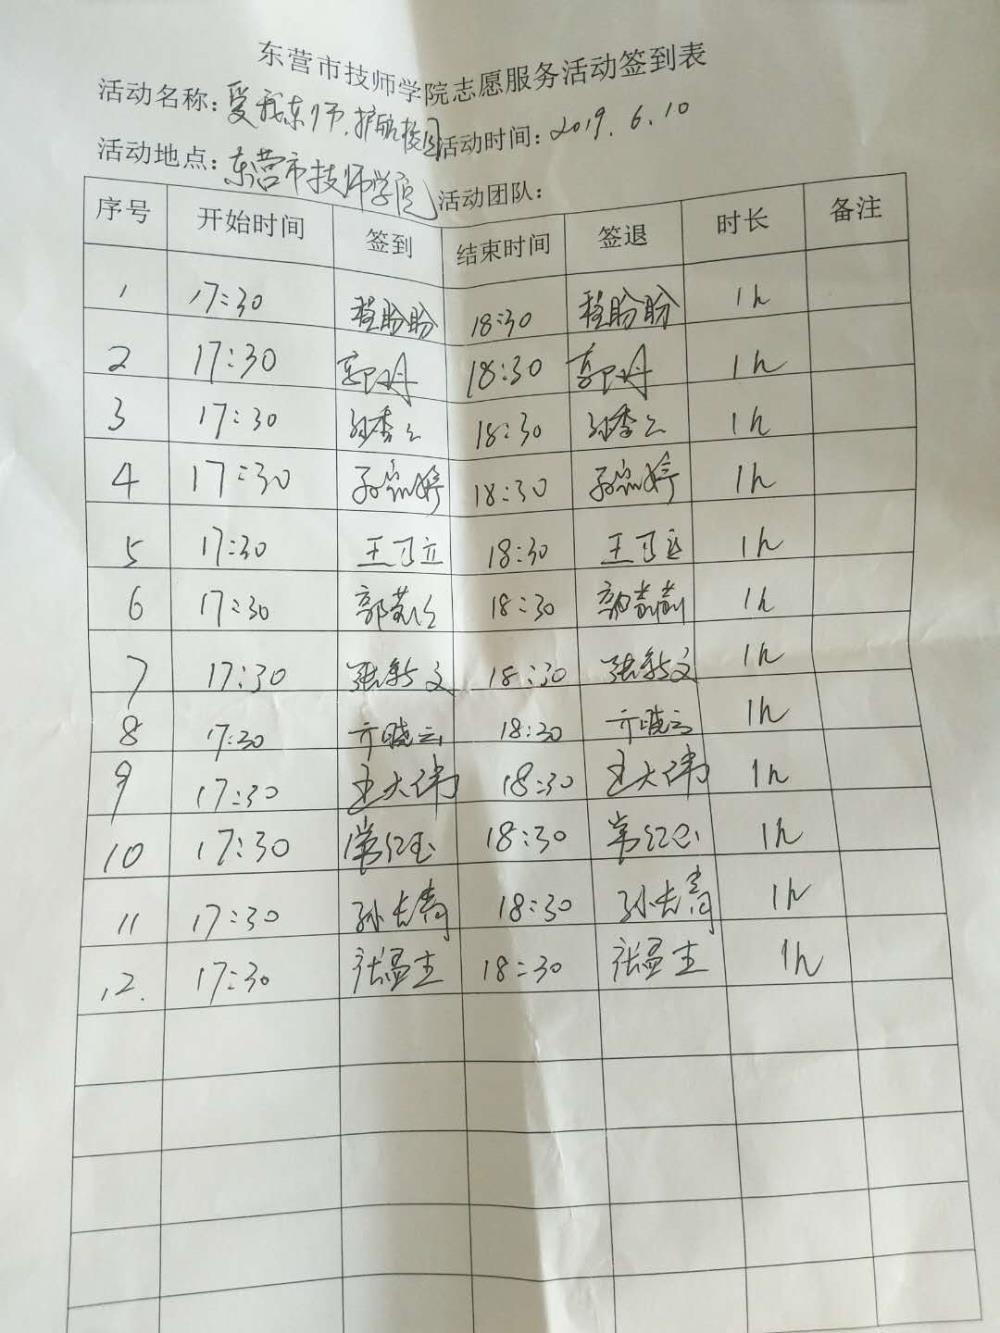 东营市技师学院志愿服务活动签到表
活动名称：爱我东师、护航校园 活动时间：2019.6.10
活动地点：东营市技师学院 活动团队：
序号 开始时间 签到 结束时间 签退 时长 备注
1 17:30 程盼盼 18:30 程盼盼 1h
2 17:30 郭丹 18:30 郭丹 1h
3 17:30 18:30 1h
4 17:30 18:30 1h
5 17:30 18:30 1h
6 17:30 18:30 1h
7 17:30 张新文 18:30 张新文 1h
8 17:30 亓晓云 18:30 亓晓云 1h
9 17:30 王大伟 18:30 王大伟 1h
10 17:30 常红玉 18:30 常红玉 1h
11 17:30 孙长青 18:30 孙长青 1h
12. 17:30 张孟主 18:30 张孟主 1h